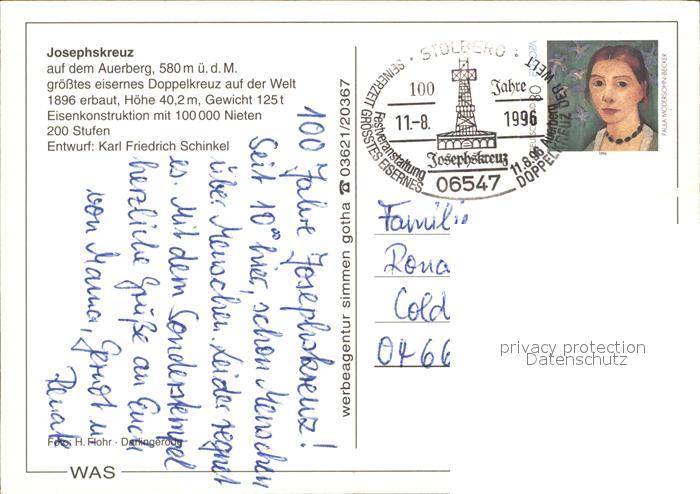 Josephskreuz
auf dem Auerberg, 580 m ü. d. M.
größtes eisernes Doppelkreuz auf der Welt
1896 erbaut, Höhe 40,2 m, Gewicht 125 t
Eisenkonstruktion mit 100 000 Nieten
200 Stufen
Entwurf: Karl Friedrich Schinkel
100 Jahre Josephskreuz!
Seit 10⁰⁰ hier, schon Menschen
über Menschen. Leider regnet
es. Mit dem Sonderstempel
herzliche Grüße an Euch
von Mama, Gernot u.
Renate
Foto: H. Flohr · Darlingerode
WAS
werbeagentur simmen gotha ☎ 03621/20367
· STOLBERG ·
SEINERZEIT GRÖSSTES EISERNES
DOPPELKREUZ DER WELT
100 Jahre
11.-8. 1996
Festveranstaltung
11.8.96 Auerberg
Josephskreuz
06547
PAULA MODERSOHN-BECKER
1996
Famili
Rona
Cold
0466
privacy protection
Datenschutz